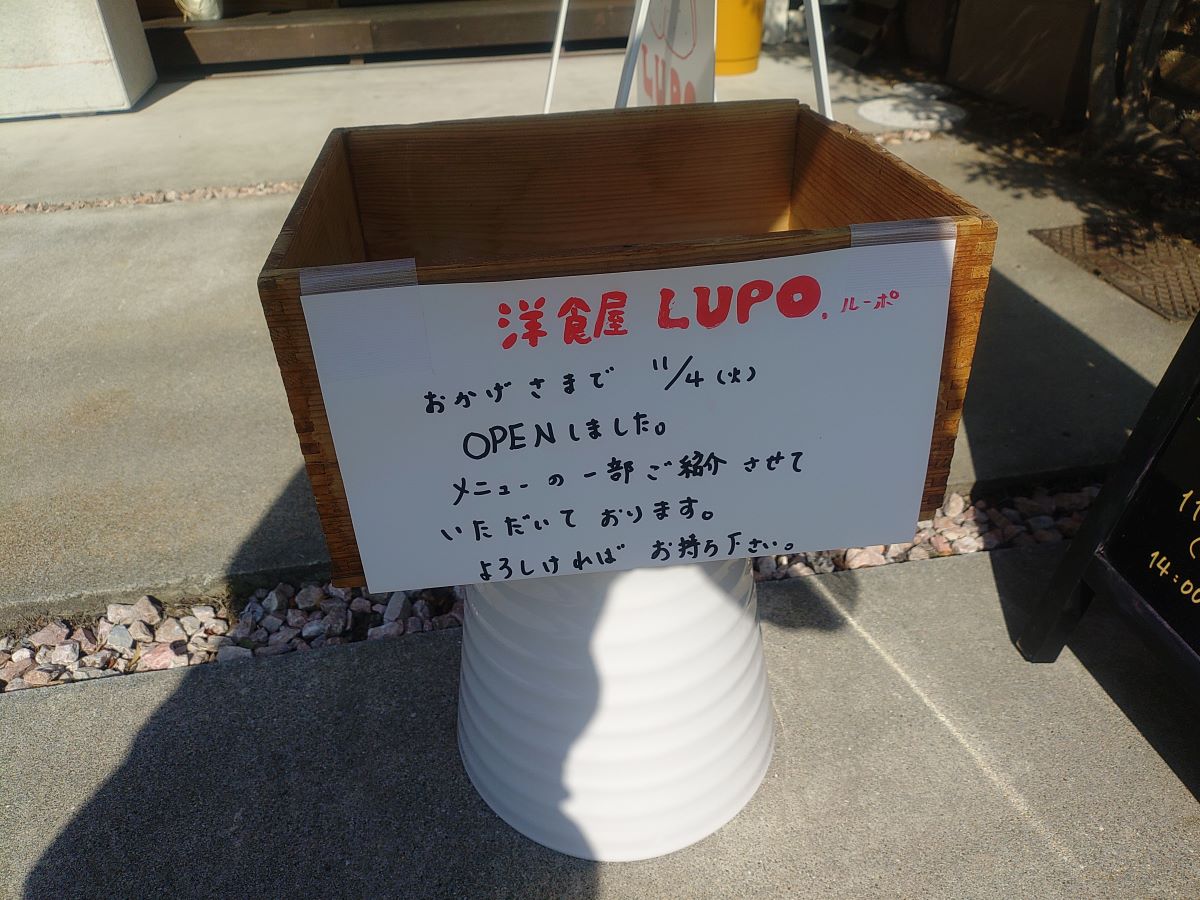 LUPO
洋食屋 LUPO. ルーポ
おかげさまで 11/4(火)
OPENしました。
メニューの一部ご紹介させて
いただいております。
よろしければ お持ち下さい。
11
14:00